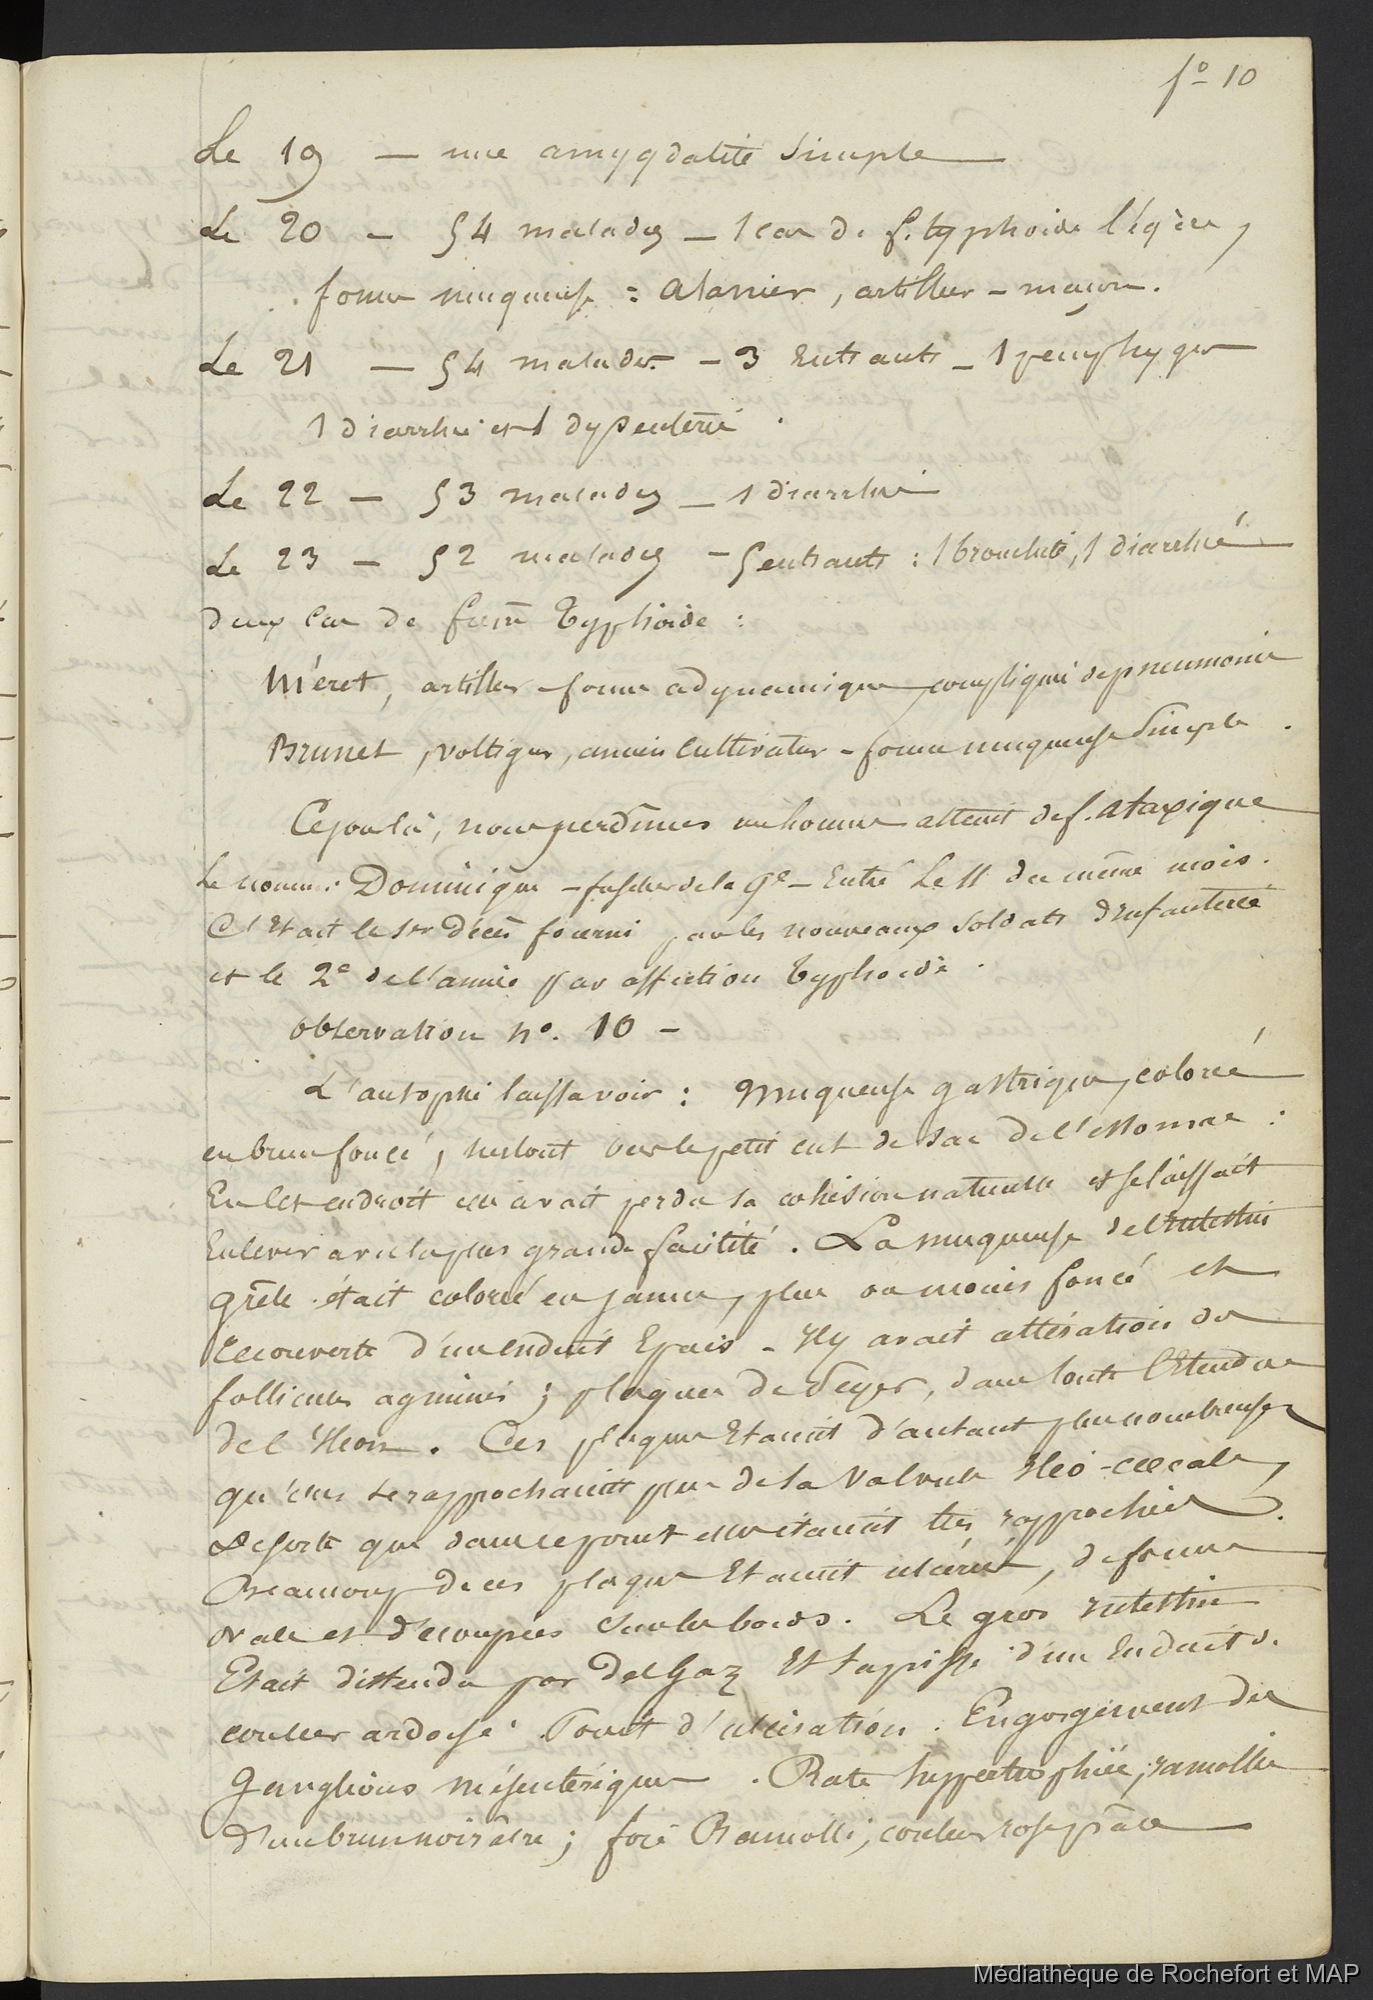 fo 10
Le 19 — une amygdalite simple
Le 20 — 54 malades — 1 cas de f. typhoide légère,
forme muqueuse : Alanier, artilleur - maçon.
Le 21 — 54 malades - 3 Entrants — 1 pemphygus
1 diarrhée et 1 dyssenterie.
Le 22 — 53 malades — 1 diarrhée
Le 23 — 52 malades — 5 entrants : 1 bronchite, 1 diarrhée
deux cas de fièvre typhoide :
Méret, artilleur - forme adynamique, compliquée de pneumonie
Brunet, voltigeur, ancien cultivateur - forme muqueuse simple.
Ce jour là, nous perdîmes un homme atteint de f. ataxique
le nommé : Dominique - fusilier de la 9e - Entré le 11 du même mois.
C'Etait le 1er décès fourni par les nouveaux soldats d'Infanterie
et le 2e de l'année par affection typhoïde.
Observation no. 10 -
L'autopsie laissa voir : Muqueuse gastrique, colorée
en brun foncé, surtout vers le petit cul de sac de l'estomac :
En cet endroit elle avait perdu sa cohésion naturelle et se laissait
Enlever avec la plus grande facilité. La muqueuse de l'Intestin
grêle était colorée en jaune, plus ou moins foncé et
recouverte d'un enduit Epais - Il y avait altération des
follicules agminés ; plaques de Peyer, dans toute l'Etendue
de l'Iléon. Ces plaques Etaient d'autant plus nombreuses
qu'elles se rapprochaient plus de la valvule Iléo-cœcale,
de sorte que dans ce point elles étaient très rapprochées.
Beaucoup de ces plaques Etaient ulcérées, de forme
ovale et découpées sur les bords. Le gros Intestin
Etait distendu par des Gaz Et tapissé d'un Enduit d.
couleur ardoisé. Point d'ulcération. Engorgement des
Ganglions mésentériques. Rate hyppertrophiée, ramollie
d'un brun noirâtre ; foie Ramolli, couleur rose pâle
Médiathèque de Rochefort et MAP